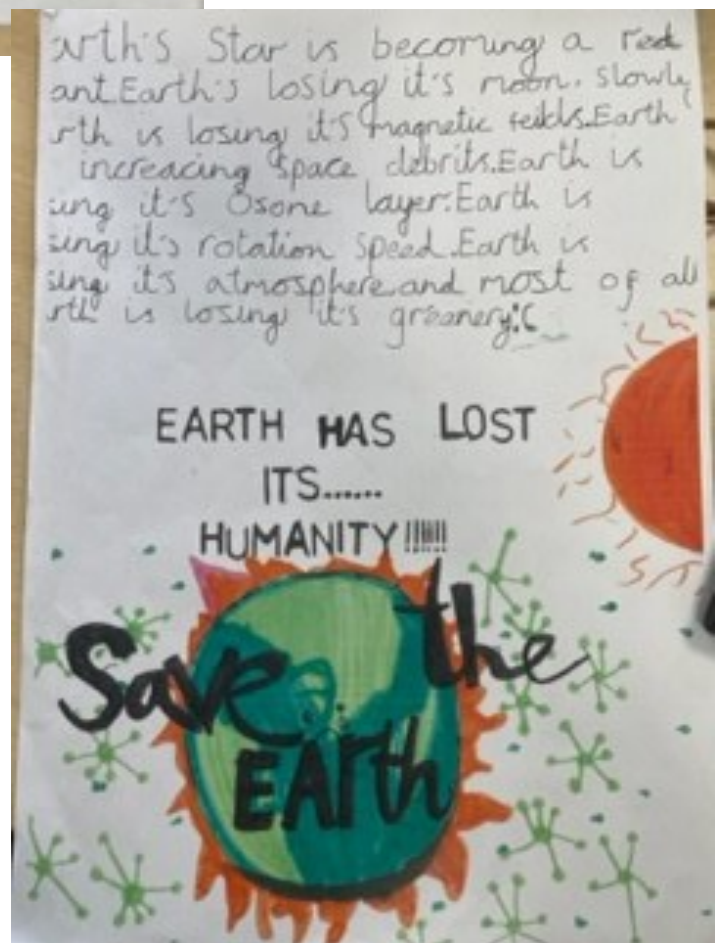 arth's Star is becoming a red
ant.Earth's losing it's moon. slowly
rth is losing it's magnetic feilds.Earth
increasing space debrits.Earth is
sing it's Osone layer.Earth is
sing it's rotation speed.Earth is
sing its atmosphere.and most of all
rth is losing it's greenery:(
EARTH HAS LOST
ITS......
HUMANITY!!!!!
Save the
EArth